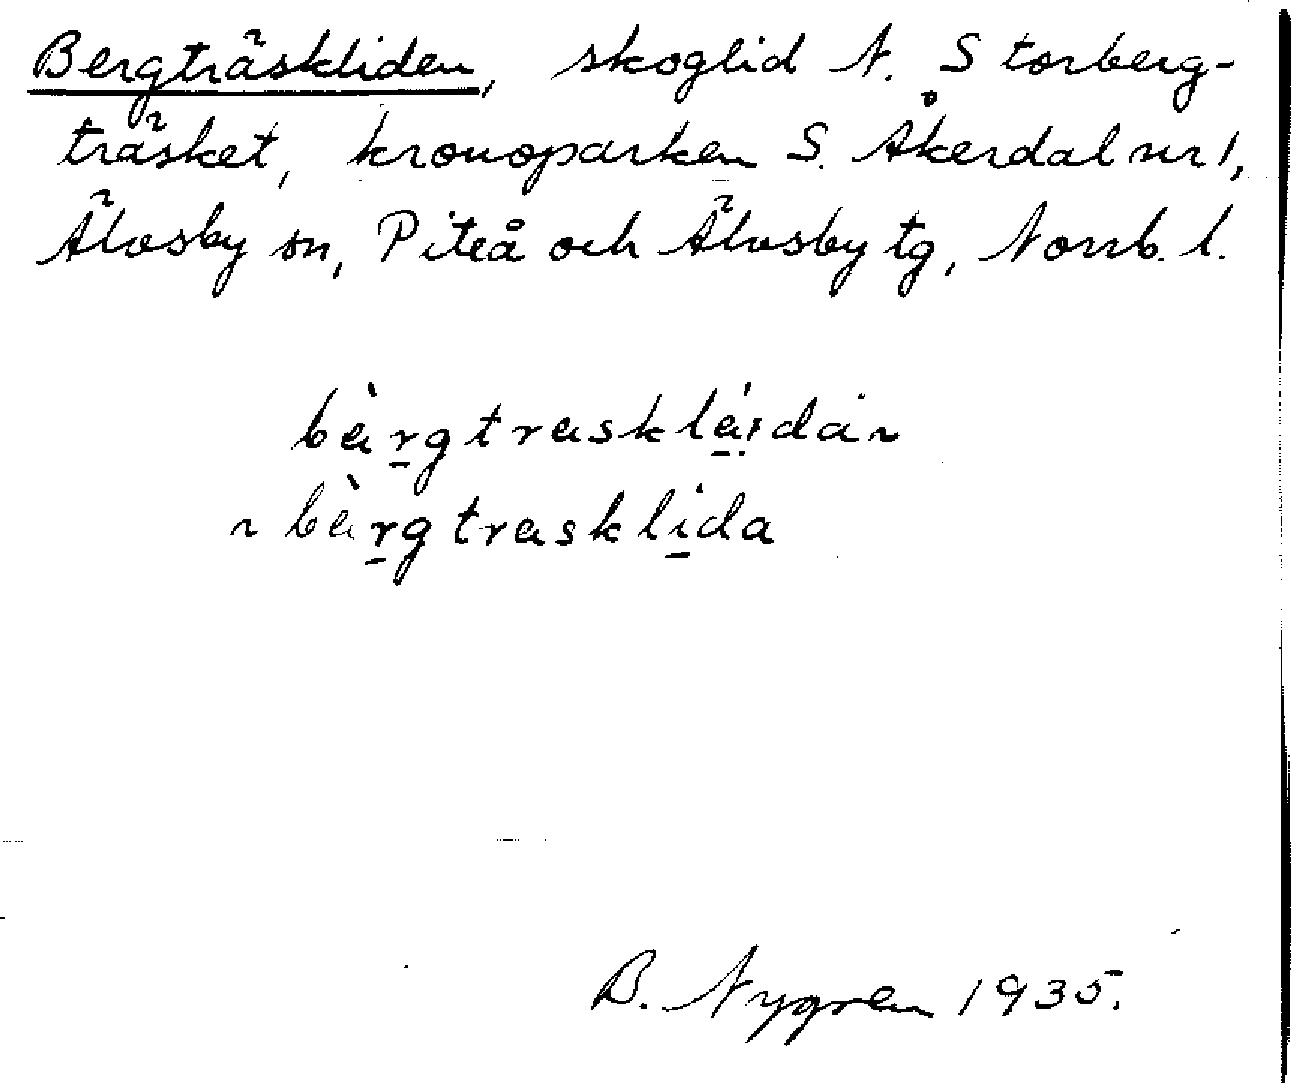 Bergträskliden, skoglid N. Storberg-
träsket, kronoparken S. Åkerdal nr 1,
Älvsby sn, Piteå och Älvsby tg, Norrb. l.
B. Nygren 1935.